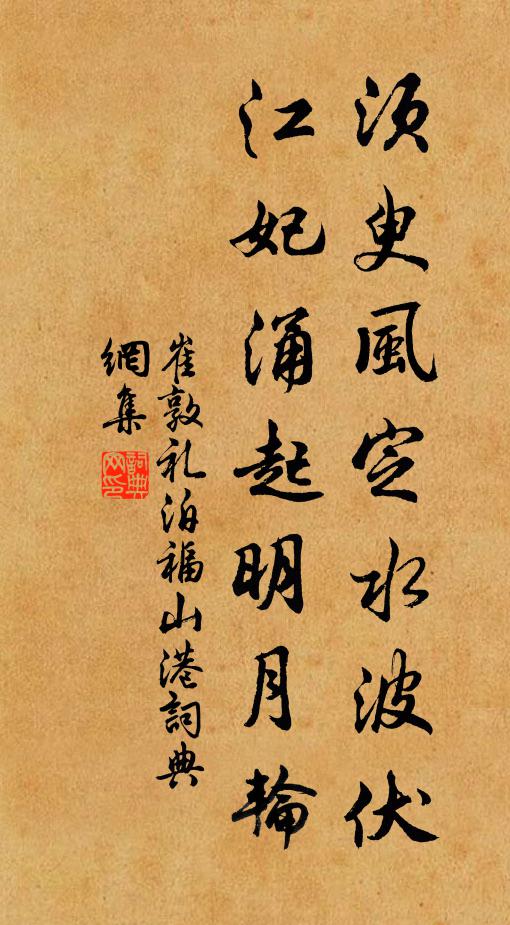 須臾風定水波伏
江妃涌起明月輪
崔敦礼泊福山港詞典
網集
詞典網印